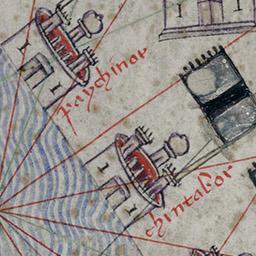 faychinor
chintalor